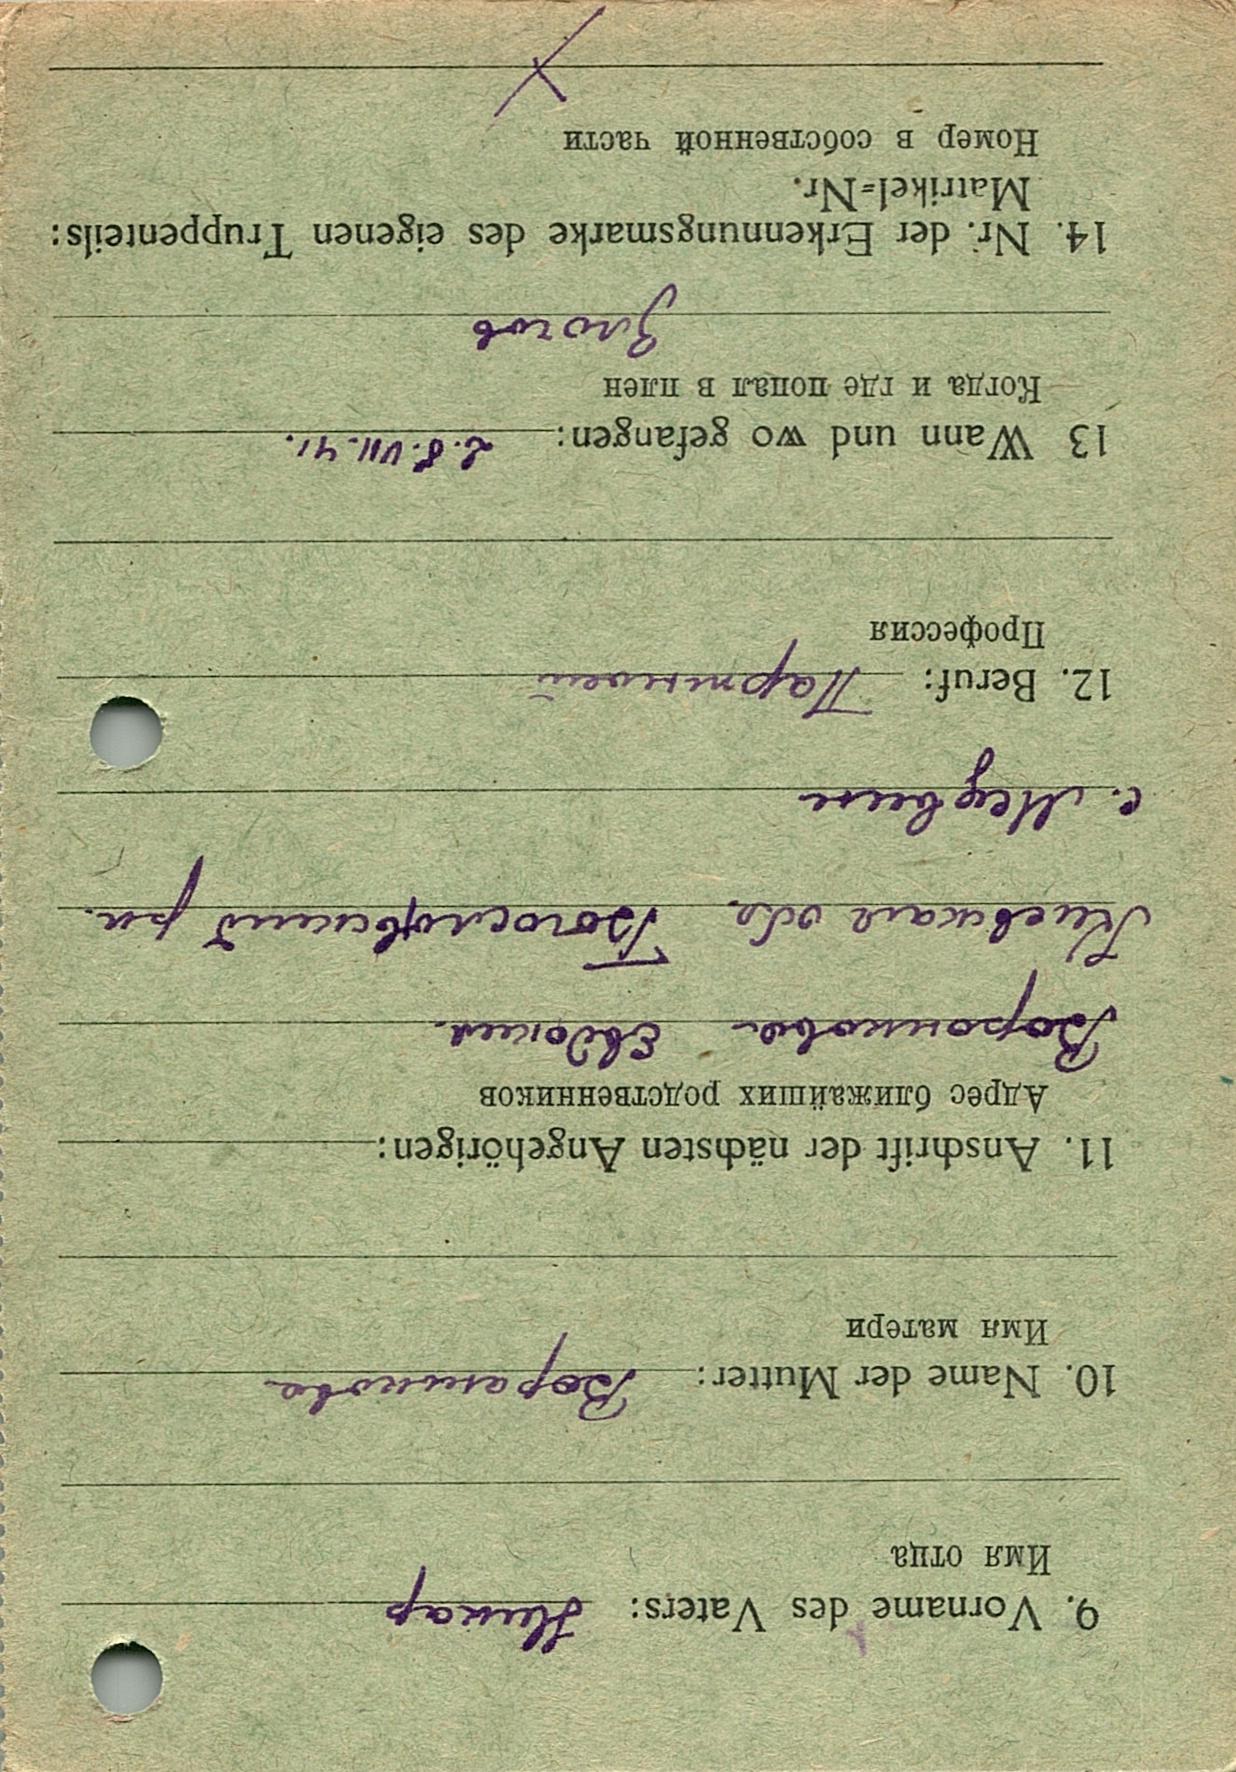 9. Vorname des Vaters: Никар
Имя отца
10. Name der Mutter: Воранкова
Имя матери
11. Anschrift der nächsten Angehörigen:
Адрес ближайших родственников
Воронкова Евдокия.
Киевская обл. Богославский рн.
с. Медвин
12. Beruf:
Профессия
13 Wann und wo gefangen: 2.8.VII.41.
Когда и где попал в плен
Злочов
14. Nr. der Erkennungsmarke des eigenen Truppenteils:
Matrikel=Nr.
Номер в собственной части